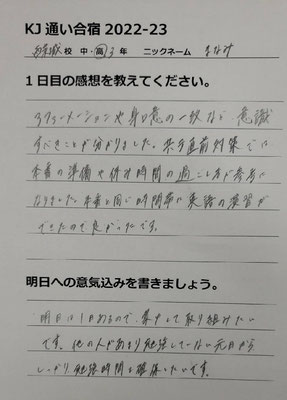 KJ 通い合宿 2022-23
校 中・高 3 年 ニックネーム まなみ
1日目の感想を教えてください。
アファメーションや身口意の一致など 意識
すべきことが分かりました。共テ直前対策では
本番の準備や休み時間の過ごし方が参考に
なりました。本番と同じ時間帯に英語の演習が
できたので良かったです。
明日への意気込みを書きましょう。
明日は1日あるので、集中して取り組みたい
です。他の人があまり勉強していない元日から
しっかり勉強時間を確保したいです。